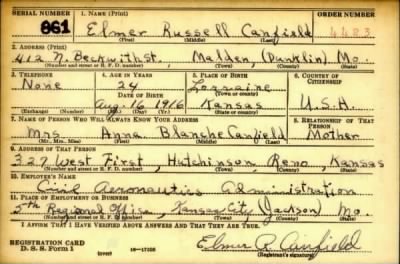 SERIAL NUMBER 1. NAME (Print) ORDER NUMBER
861 Elmer Russell Canfield 4483
(First) (Middle) (Last)
2. ADDRESS (Print)
412 N. Beckwith St. Malden, (Dunklin) Mo.
(Number and street or R. F. D. number) (Town) (County) (State)
3. TELEPHONE 4. AGE IN YEARS 5. PLACE OF BIRTH 6. COUNTRY OF CITIZENSHIP
None 24 Lorraine
DATE OF BIRTH (Town or county)
Aug. 16 1916 Kansas U.S.A.
(Exchange) (Number) (Mo.) (Day) (Yr.) (State or country)
7. NAME OF PERSON WHO WILL ALWAYS KNOW YOUR ADDRESS 8. RELATIONSHIP OF THAT PERSON
Mrs. Anna Blanche Canfield Mother
(Mr., Mrs., Miss) (First) (Middle) (Last)
9. ADDRESS OF THAT PERSON
327 West First, Hutchinson, Reno, Kansas
(Number and street or R. F. D. number) (Town) (County) (State)
10. EMPLOYER'S NAME
Civil Aeronautics Administration
11. PLACE OF EMPLOYMENT OR BUSINESS
5th Regional Office, Kansas City (Jackson) Mo.
(Number and street or R. F. D. number) (Town) (County) (State)
I AFFIRM THAT I HAVE VERIFIED ABOVE ANSWERS AND THAT THEY ARE TRUE.
REGISTRATION CARD
D. S. S. Form 1 (over) 16—17105 Elmer R Canfield
(Registrant's signature)